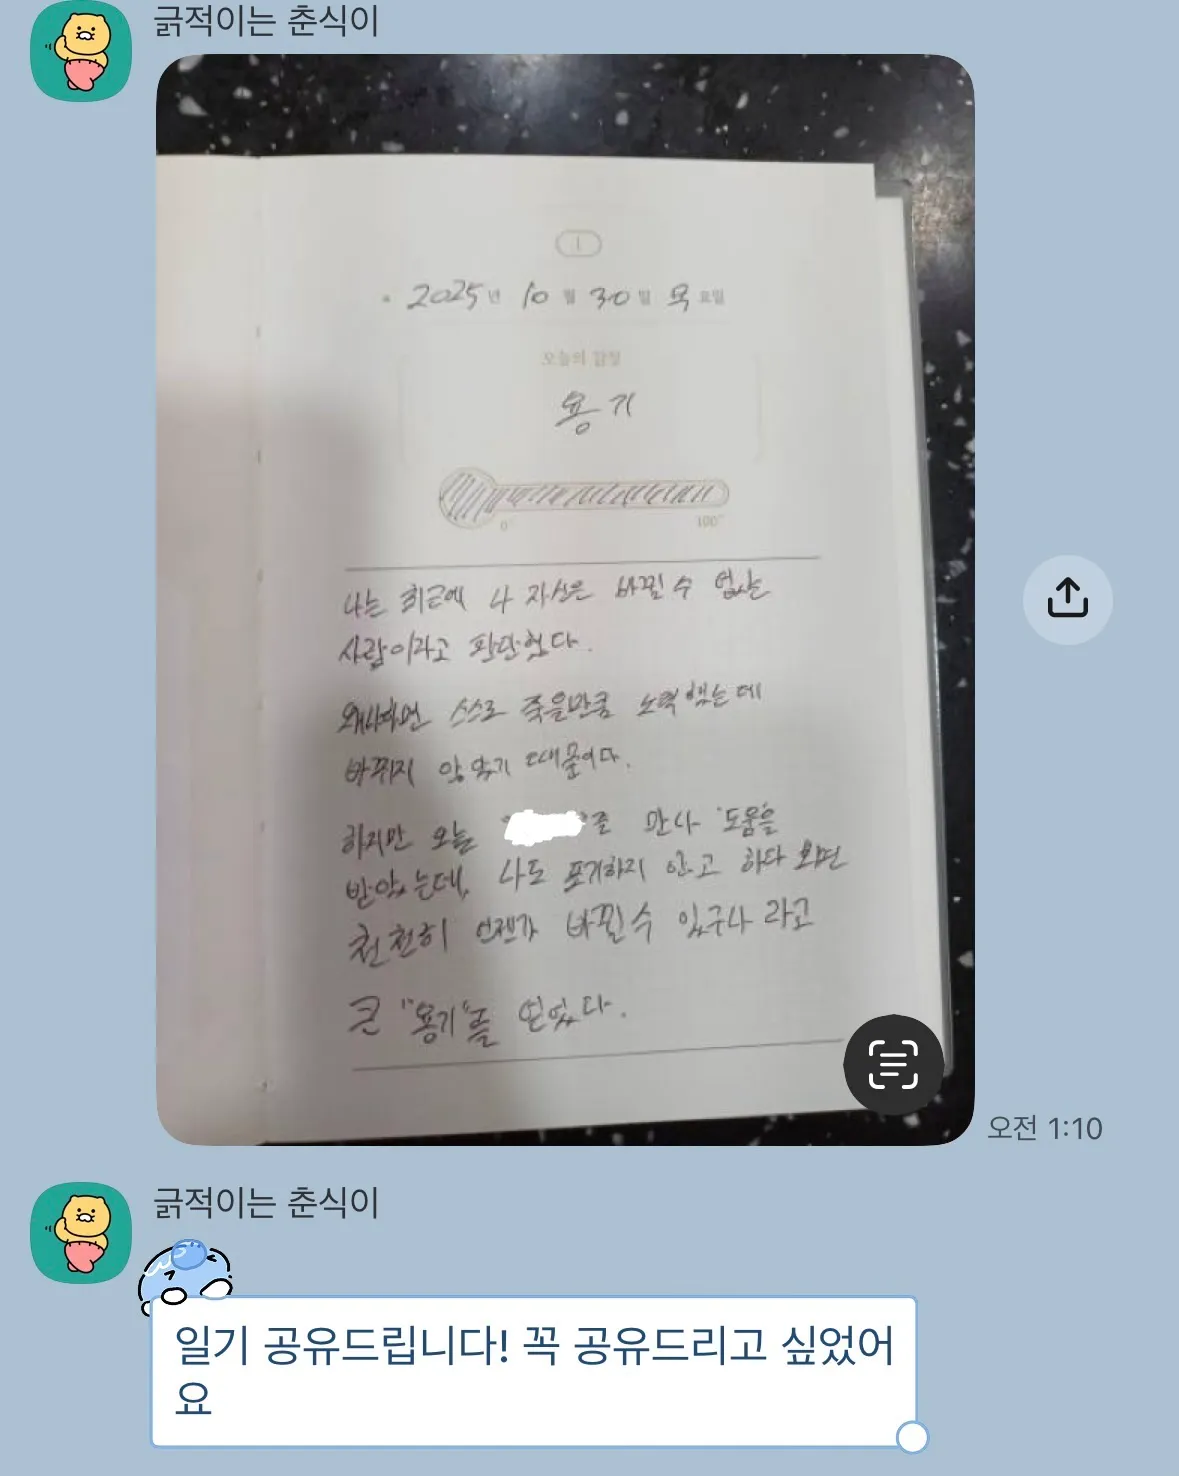 긁적이는 춘식이
1
2025년 10월 30일 목요일
오늘의 감정
용기
0° 100°
나는 최근에 나 자신은 바뀔 수 없는
사람이라고 판단했다.
왜냐하면 스스로 죽을만큼 노력했는데
바뀌지 않았기 때문이다.
하지만 오늘 을 만나 도움을
받았는데, 나도 포기하지 않고 하다 보면
천천히 언젠가 바뀔 수 있구나 라고
큰 "용기"를 얻었다.
오전 1:10
긁적이는 춘식이
일기 공유드립니다! 꼭 공유드리고 싶었어
요